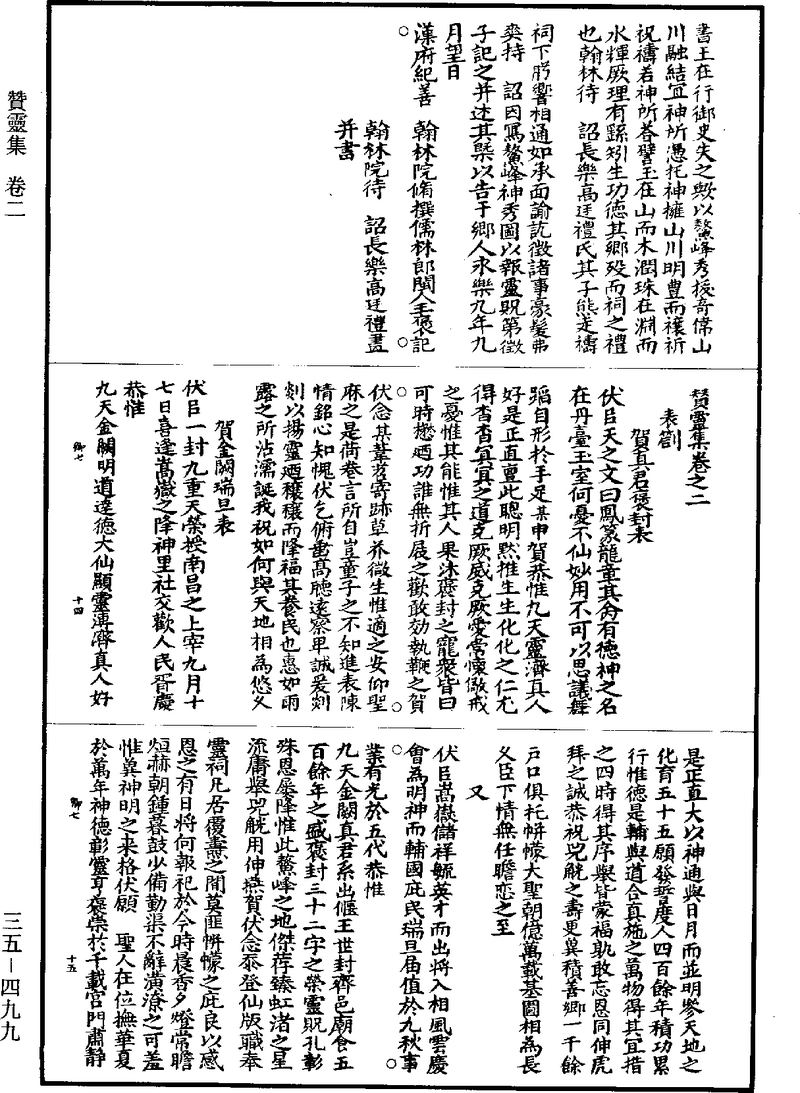 贊靈集 卷二
三五－四九九
書王在行御史失之歟以鰲峰秀拔奇偉山
川融結宜神所憑托神擁山川明豊而禳祈
祝禱若神所荅譬玉在山而木潤珠在淵而
水輝厥理有繇矧生功德其鄉殁而祠之禮
也翰林待 詔長樂高廷禮氏其子熊走禱
祠下肹響相通如承面諭訖徵諸事豪髮弗
爽持 詔因寫鰲峰神秀圖以報靈貺第徵
子記之并述其槩以告于鄉人永樂九年九
月望日
漢府紀善 翰林院脩撰儒林郎閩人王褒記
翰林院待 詔長樂高廷禮書
并書
贊靈集卷之二
表劄
賀真君褒封表
伏㠯天之文曰鳳篆龍章其侖有德神之名
在丹臺玉室何憂不仙妙用不可以思議舞
蹈自形於手足某申賀恭惟九天靈濟真人
好是正直亶此聰明黙推生生化化之仁尤
得杳杳冥冥之道克厥威克厥愛常懷儆戒
之憂惟其能惟其人果沐褒封之寵衆皆曰
可時懋迺功誰無折屐之歡敢効執鞭之賀
伏念某葦芨寄跡草莽微生惟適之安仰聖
庥之是荷巷言所自豈童子之不知進表陳
情銘心知愧伏乞俯垂高聽逺察卑誠爰剡
剡以揚靈迺穰穰而降福其養民也惠如雨
露之所沾濡誕我祝如何與天地相為悠久
賀金闕瑞旦表
伏㠯一封九重天榮授南昌之上宰九月十
七日喜逢嵩嶽之降神里社交歡人民胥慶
恭惟
九天金闕明道逹德大仙顯靈溥濟真人好
是正直大以神通與日月而並明參天地之
化育五十五願發誓度人四百餘年積功累
行惟德是輔與道合真施之萬物得其宜措
之四時得其序舉皆蒙福孰敢忘恩同伸虎
拜之誠恭祝兕觥之壽更兾積善鄉一千餘
戸口俱托帡幪大聖朝億萬載基圖相為長
乆臣下情無任瞻恋之至
又
伏㠯嵩嶽儲祥毓英才而出將入相風雲慶
會為明神而輔國庇民瑞旦届值於九秋事
業有光於五代恭惟
九天金闕真君系出偃王世封齊邑廟食五
百餘年之盛褒封三十二字之榮靈貺孔彰
殊恩屡降惟此鰲峰之地傑荐臻虹渚之星
流庸舉兕觥用伸燕賀伏念忝登仙版職奉
靈祠凡居覆燾之間莫匪帡幪之庇良以感
恩之有日將何報祀於今時晨香夕燈常瞻
烜赫朝鍾暮鼓少備勤渠不辭潢潦之可羞
惟兾神明之来格伏願 聖人在位撫華夏
於萬年神德彰靈亨褒榮於千載宮門肅静
卿七
十四
卿七
十五